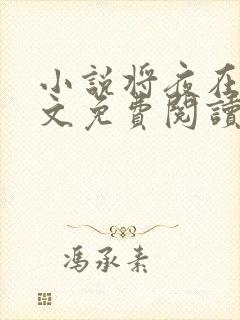 小説将夜在
文免費閱讀
馮承素